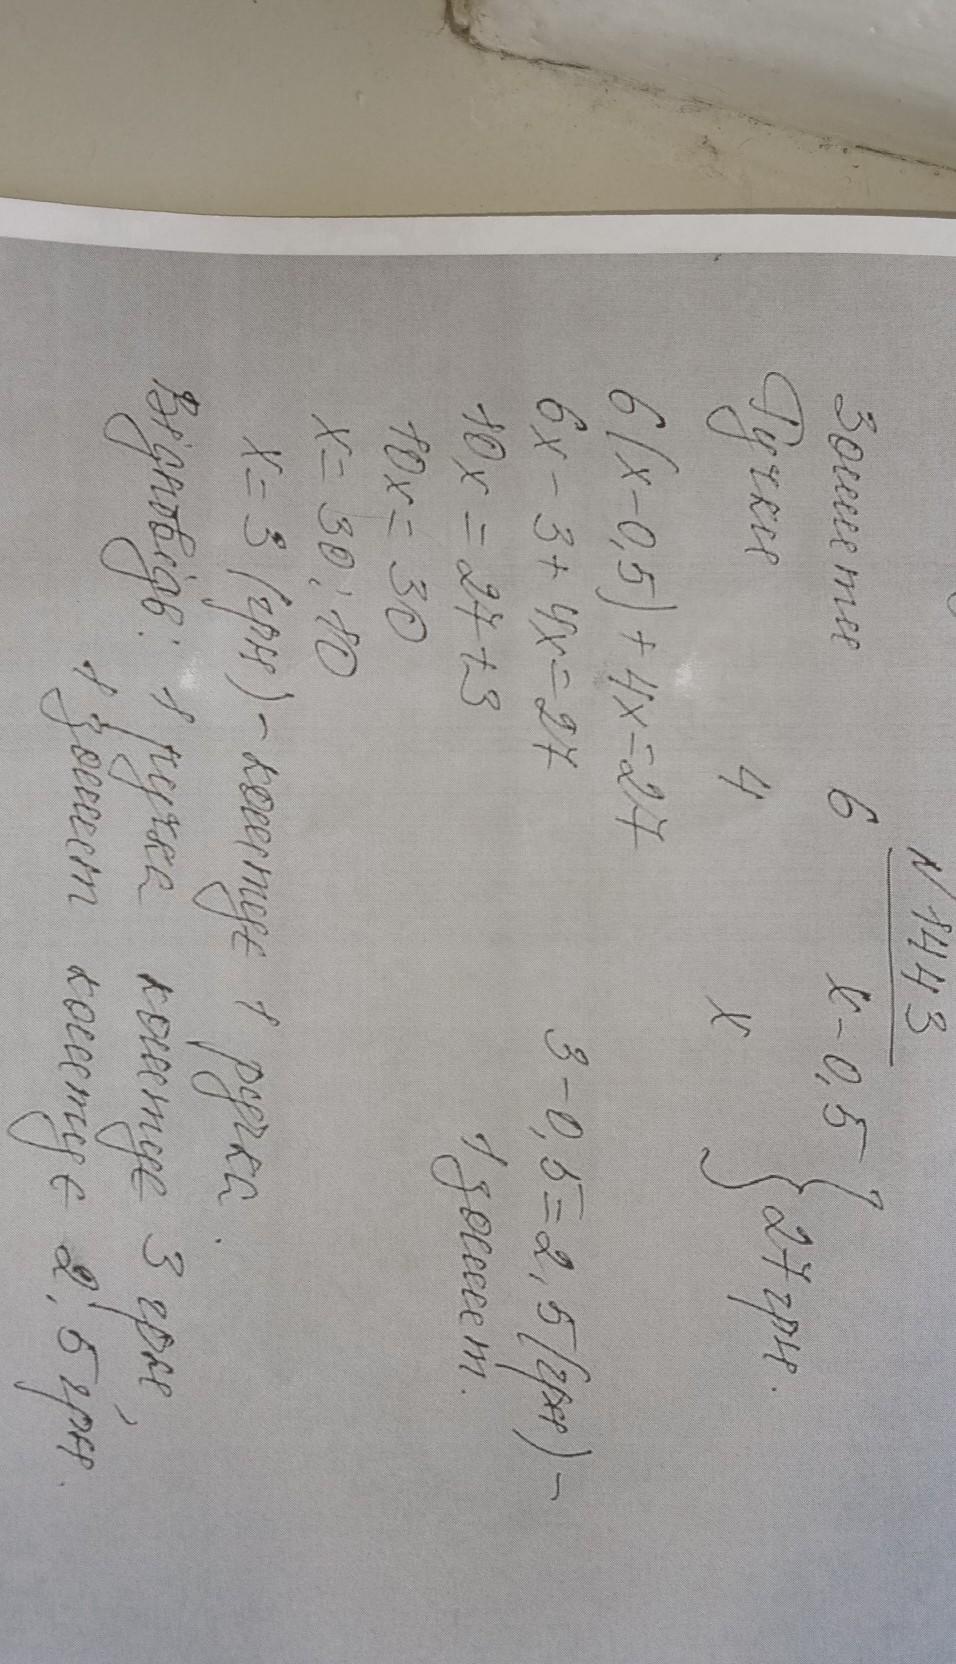 N 1443
Зошити 6 x-0,5 } 27 грн.
Ручки 4 x
6(x-0,5)+4x=27
6x-3+4x=27
10x=27+3
10x=30
x=30:10
x=3 (грн) - коштує 1 ручка.
3-0,5=2,5(грн)-
1 зошит.
Відповідь: 1 ручка коштує 3 грн,
1 зошит коштує 2,5 грн.